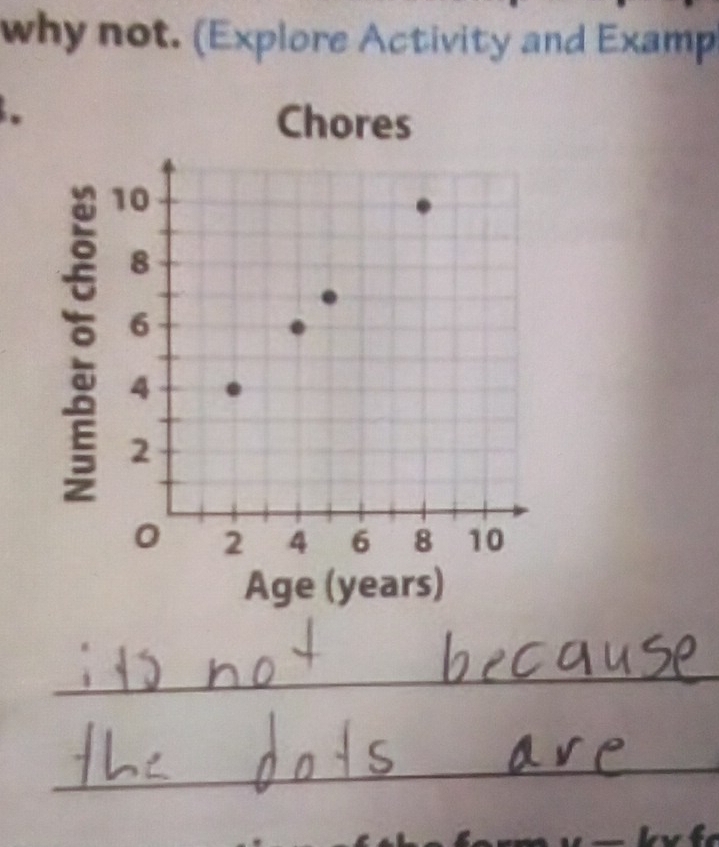 why not. (Explore Activity and Examp
Chores
Number of chores
10
8
6
4
2
O 2 4 6 8 10
Age (years)
its not because
the dots are
of the form y = kx fo